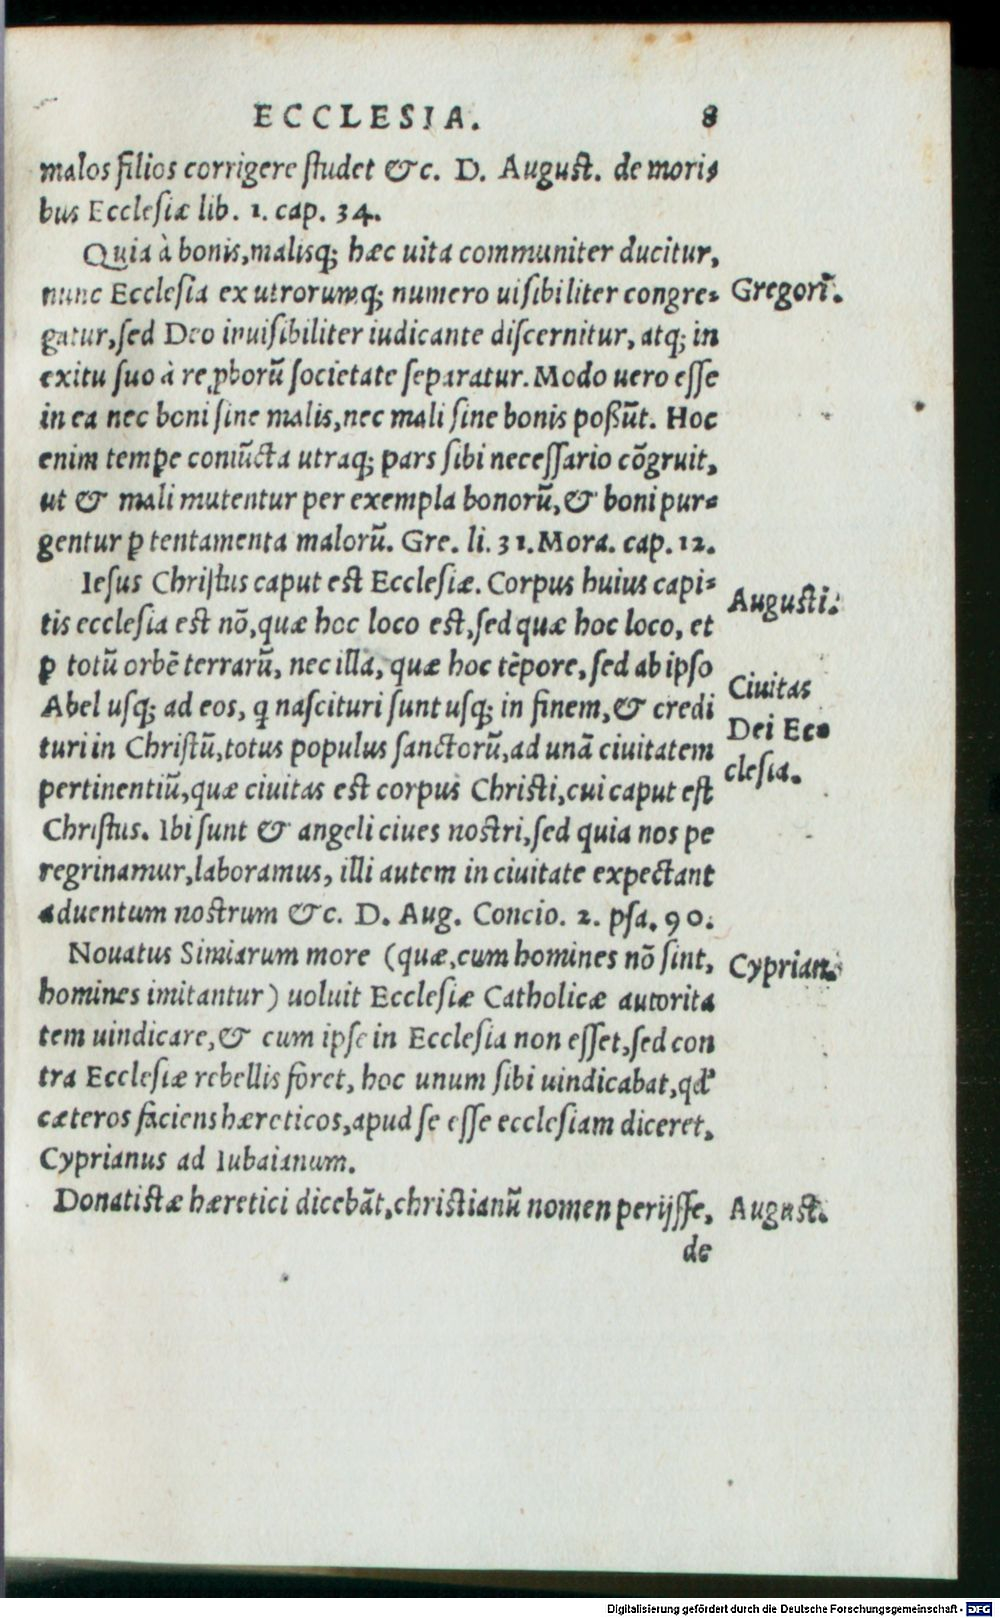 ECCLESIA. 8
malos filios corrigere studet &c. D. August. de mori⸗
bus Ecclesiæ lib. 1. cap. 34.
Quia à bonis, malisq; hæc uita communiter ducitur,
nunc Ecclesia ex utrorumq; numero uisibiliter congre⸗
Gregori̅.
gatur, sed Deo inuisibiliter iudicante discernitur, atq; in
exitu suo à re ꝓborū societate separatur. Modo uero esse
in ea nec boni sine malis, nec mali sine bonis poßūt. Hoc
enim temꝑe coniūcta utraq; pars sibi necessario cōgruit,
ut & mali mutentur per exempla bonorū, & boni pur⸗
gentur ꝑ tentamenta malorū. Gre. li. 31. Mora. cap. 12.
Iesus Christus caput est Ecclesiæ. Corpus huius capi⸗
Augusti.
tis ecclesia est nō, quæ hoc loco est, sed quæ hoc loco, et
ꝑ totū orbē terrarū, nec illa, quæ hoc tēpore, sed ab ipso
Ciuitas
Abel usq; ad eos, q̄ nascituri sunt usq; in finem, & credi
Dei Ec⸗
turi in Christū, totus populus sanctorū, ad unā ciuitatem
clesia.
pertinentiū, quæ ciuitas est corpus Christi, cui caput est
Christus. Ibi sunt & angeli ciues nostri, sed quia nos pe
regrinamur, laboramus, illi autem in ciuitate expectant
aduentum nostrum &c. D. Aug. Concio. 2. psa. 90.
Nouatus Simiarum more (quæ, cum homines nō sint,
Cyprian.
homines imitantur) uoluit Ecclesiæ Catholicæ autorita
tem uindicare, & cum ipse in Ecclesia non esset, sed con
tra Ecclesiæ rebellis foret, hoc unum sibi uindicabat, qd'
cæteros faciens hæreticos, apud se esse ecclesiam diceret.
Cyprianus ad Iubaianum.
Donatistæ hæretici dicebāt, christianū nomen perijsse,
August.
de
Digitalisierung gefördert durch die Deutsche Forschungsgemeinschaft - DFG